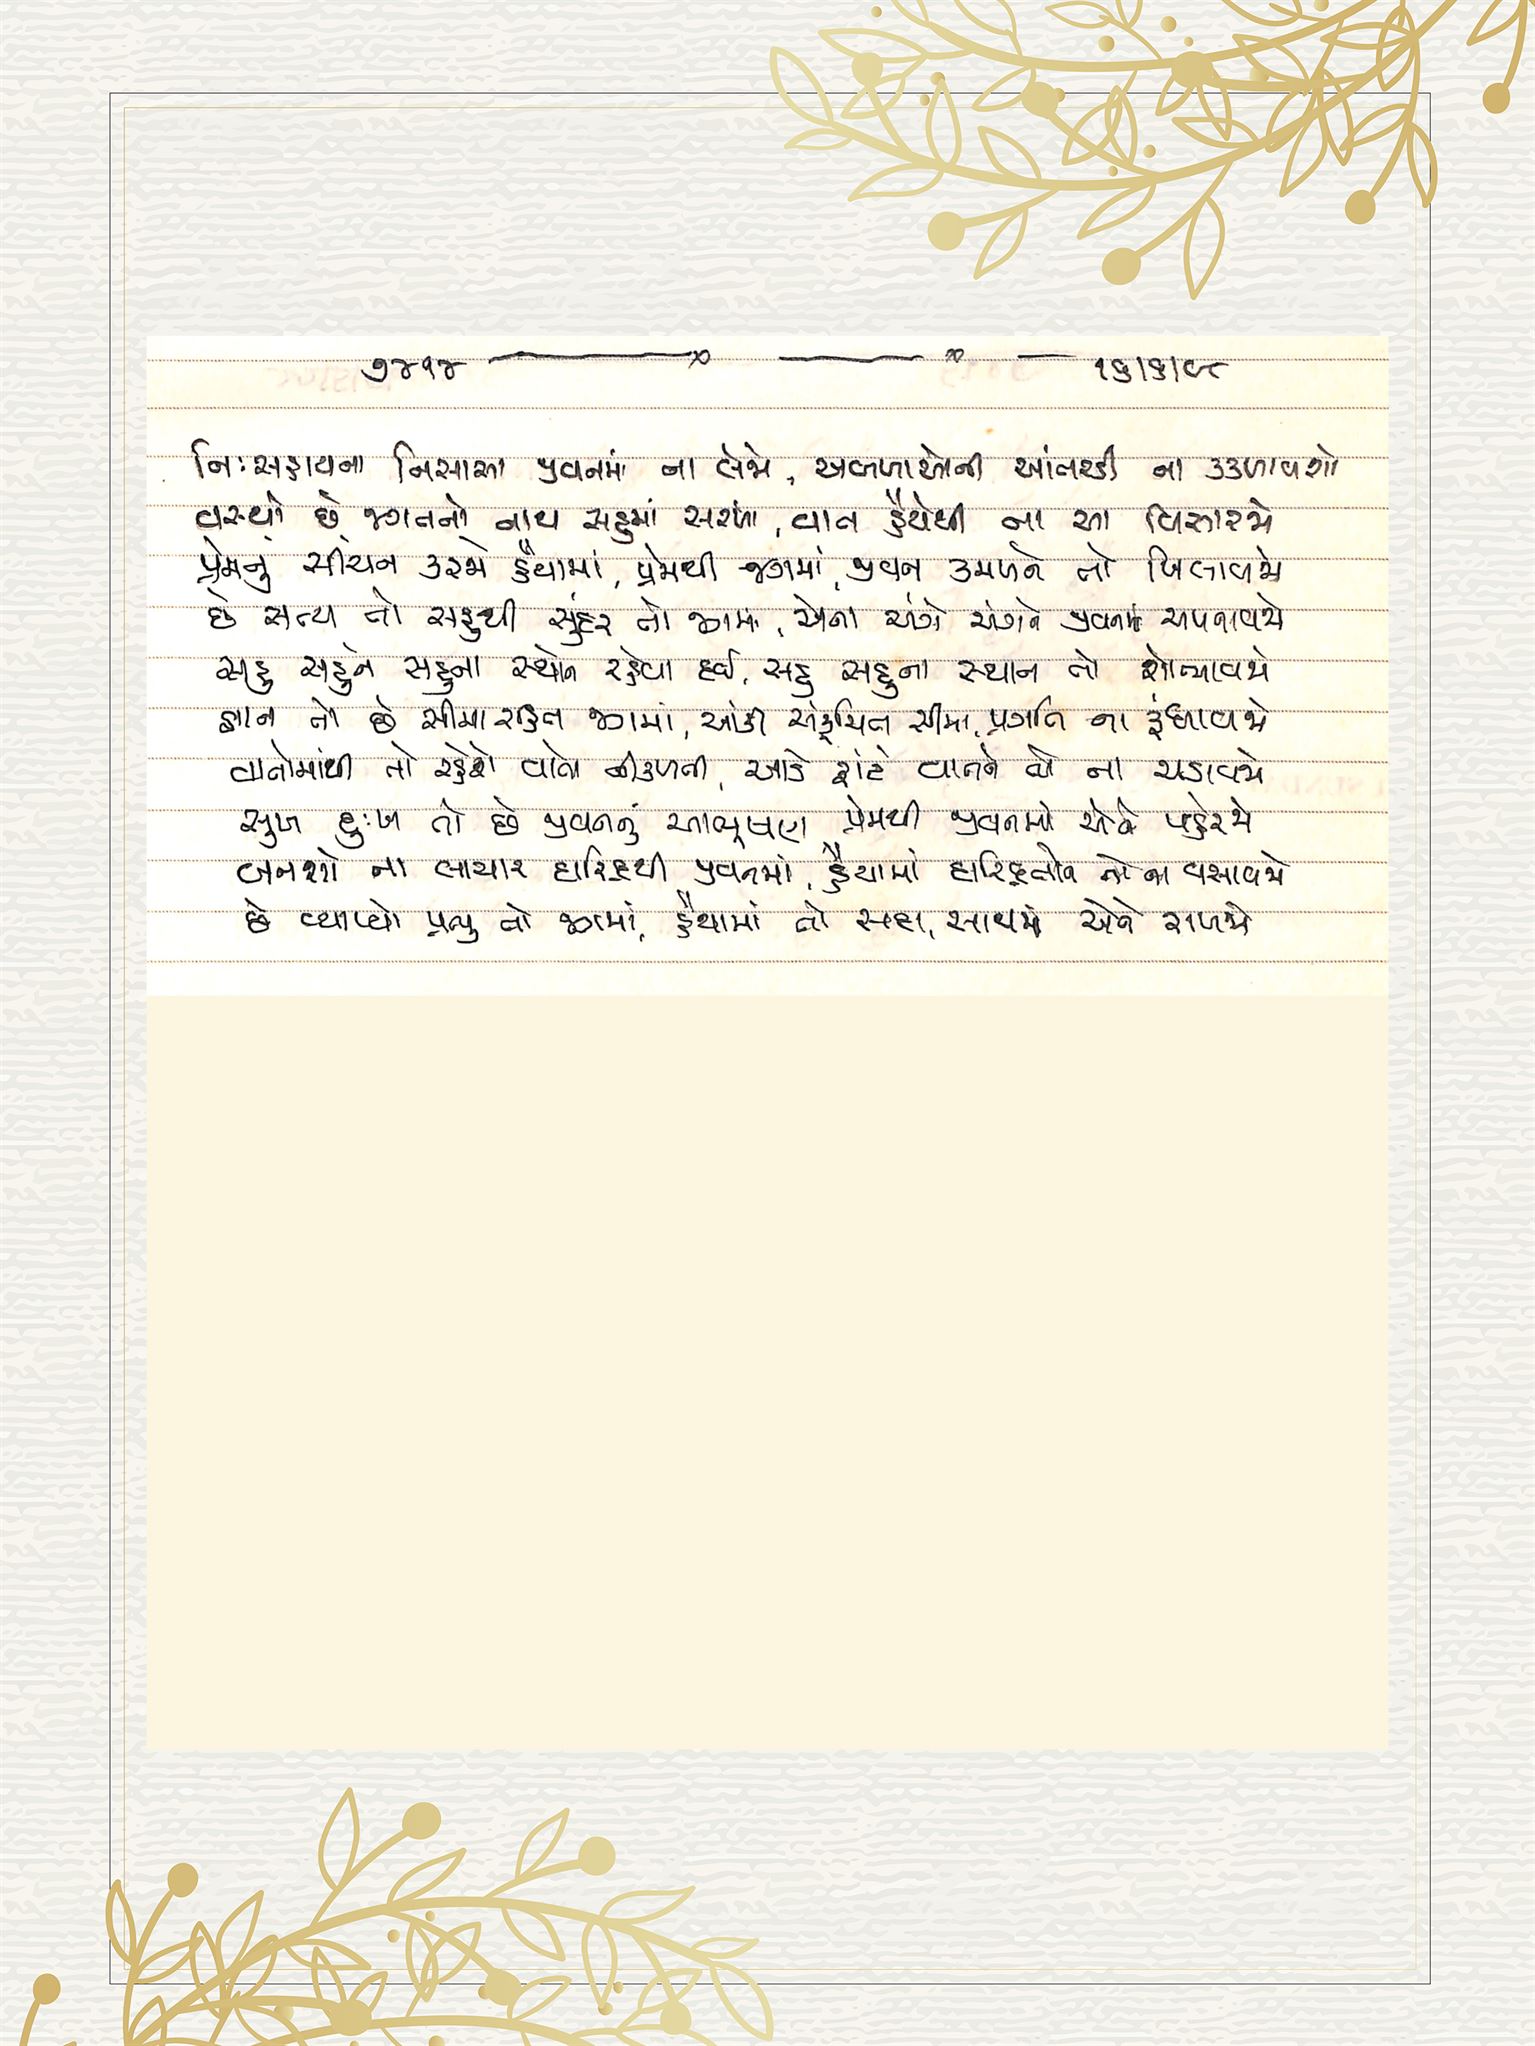 ૭૪૧૪ ૧૬/૬/૯૮
નિઃસહાયના નિસાસા જીવનમાં ના લેજે, અબળાઓની આંતરડી ના કકળાવશો
વસ્યો છે જગતનો નાથ સહુમાં સરખો, વાત હૈયેથી ના આ વિસારજે
પ્રેમનું સીંચન કરજે હૈયામાં, પ્રેમથી જગમાં, જીવન કમળને તો ખિલાવજે
છે સત્ય તો સહુથી સુંદર તો જગમાં, એના અંગે અંગને જીવનમાં અપનાવજે
સહુ સહુને સહુના સ્થાને રહેવા દઈ, સહુ સહુના સ્થાન તો શોભાવજે
જ્ઞાન તો છે સીમા રહિત જગમાં, આંકી સંકુચિત સીમા, પ્રગતિ ના રૂંધાવજે
વાતોમાંથી તો રહેશે વાતો નીકળતી, આડે પાટે વાતને તો ના ચડાવજે
સુખ દુઃખ તો છે જીવનનું આભૂષણ પ્રેમથી જીવનમાં એને પહેરજે
બનશો ના લાચાર દારિદ્રથી જીવનમાં, હૈયામાં દારિદ્રતાને તો ના વસાવજે
છે વ્યાપ્યો પ્રભુ તો જગમાં, હૈયામાં તો સદા, સાથમાં એને રાખજે